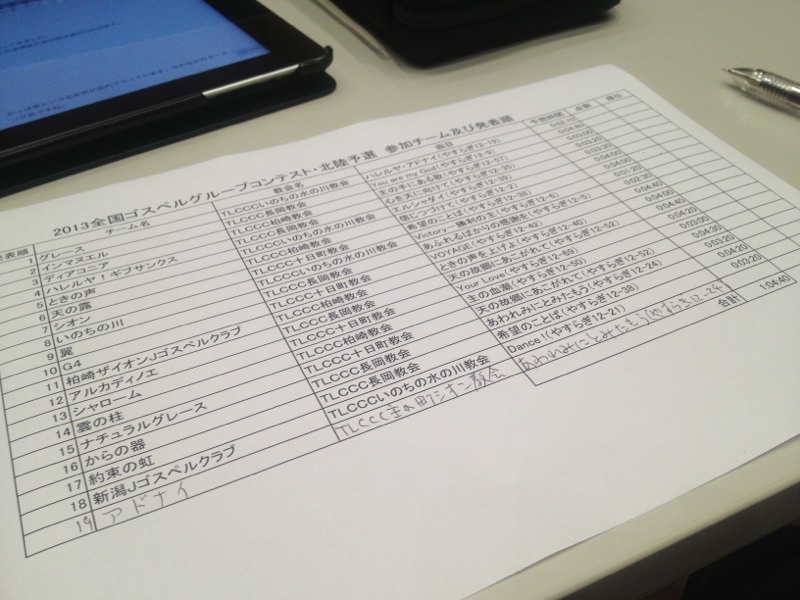 2013全国ゴスペルグループコンテスト・北陸予選 参加チーム及び発表順
表順 チーム名 教会名 曲目 予想時間 点数 順位
1 グレース TLCCCいのちの水の川教会 ハレルヤ・アドナイ(やすらぎ12-19)
2 インマヌエル TLCCC長岡教会 You are my God(やすらぎ12-9)
3 ディアコニア TLCCC柏崎教会 主の手にある歌(やすらぎ12-57)
4 ハレルヤ！ギブサンクス TLCCC長岡教会 心を天に向けて(やすらぎ12-35)
5 ときの声 TLCCCいのちの水の川教会 エルシャダイ(やすらぎ12-39)
6 天の露 TLCCC柏崎教会 信じつづけて(やすらぎ12-2)
7 シオン TLCCC十日町教会 希望のことば(やすらぎ12-38)
8 いのちの川 TLCCCいのちの水の川教会 Victory―勝利の主(やすらぎ12-6)
9 翼 TLCCC長岡教会 あふれるばかりの感謝を(やすらぎ12-5)
10 G4 TLCCC十日町教会 VOYAGE(やすらぎ12-42)
11 柏崎ザイオンJゴスペルクラブ TLCCC柏崎教会 ときの声を上げよ(やすらぎ12-40)
12 アルカディノエ TLCCC長岡教会 天の故郷にあこがれて(やすらぎ12-52)
13 シャローム TLCCC十日町教会 Your Love(やすらぎ12-59)
14 雲の柱 TLCCC柏崎教会 主の血潮(やすらぎ12-50)
15 ナチュラルグレース TLCCC十日町教会 天の故郷にあこがれて(やすらぎ12-52)
16 からの器 TLCCC長岡教会 あわれみにとみたもう(やすらぎ12-24) 0:04:20
17 約束の虹 TLCCC長岡教会 希望のことば(やすらぎ12-38) 0:03:20
18 新潟Jゴスペルクラブ TLCCCいのちの水の川教会 Dance!(やすらぎ12-21) 0:03:20
19 アドナイ TLCCC主の町シオン教会 あわれみにとみたもう(やすらぎ12-24)
合計 1:04:40